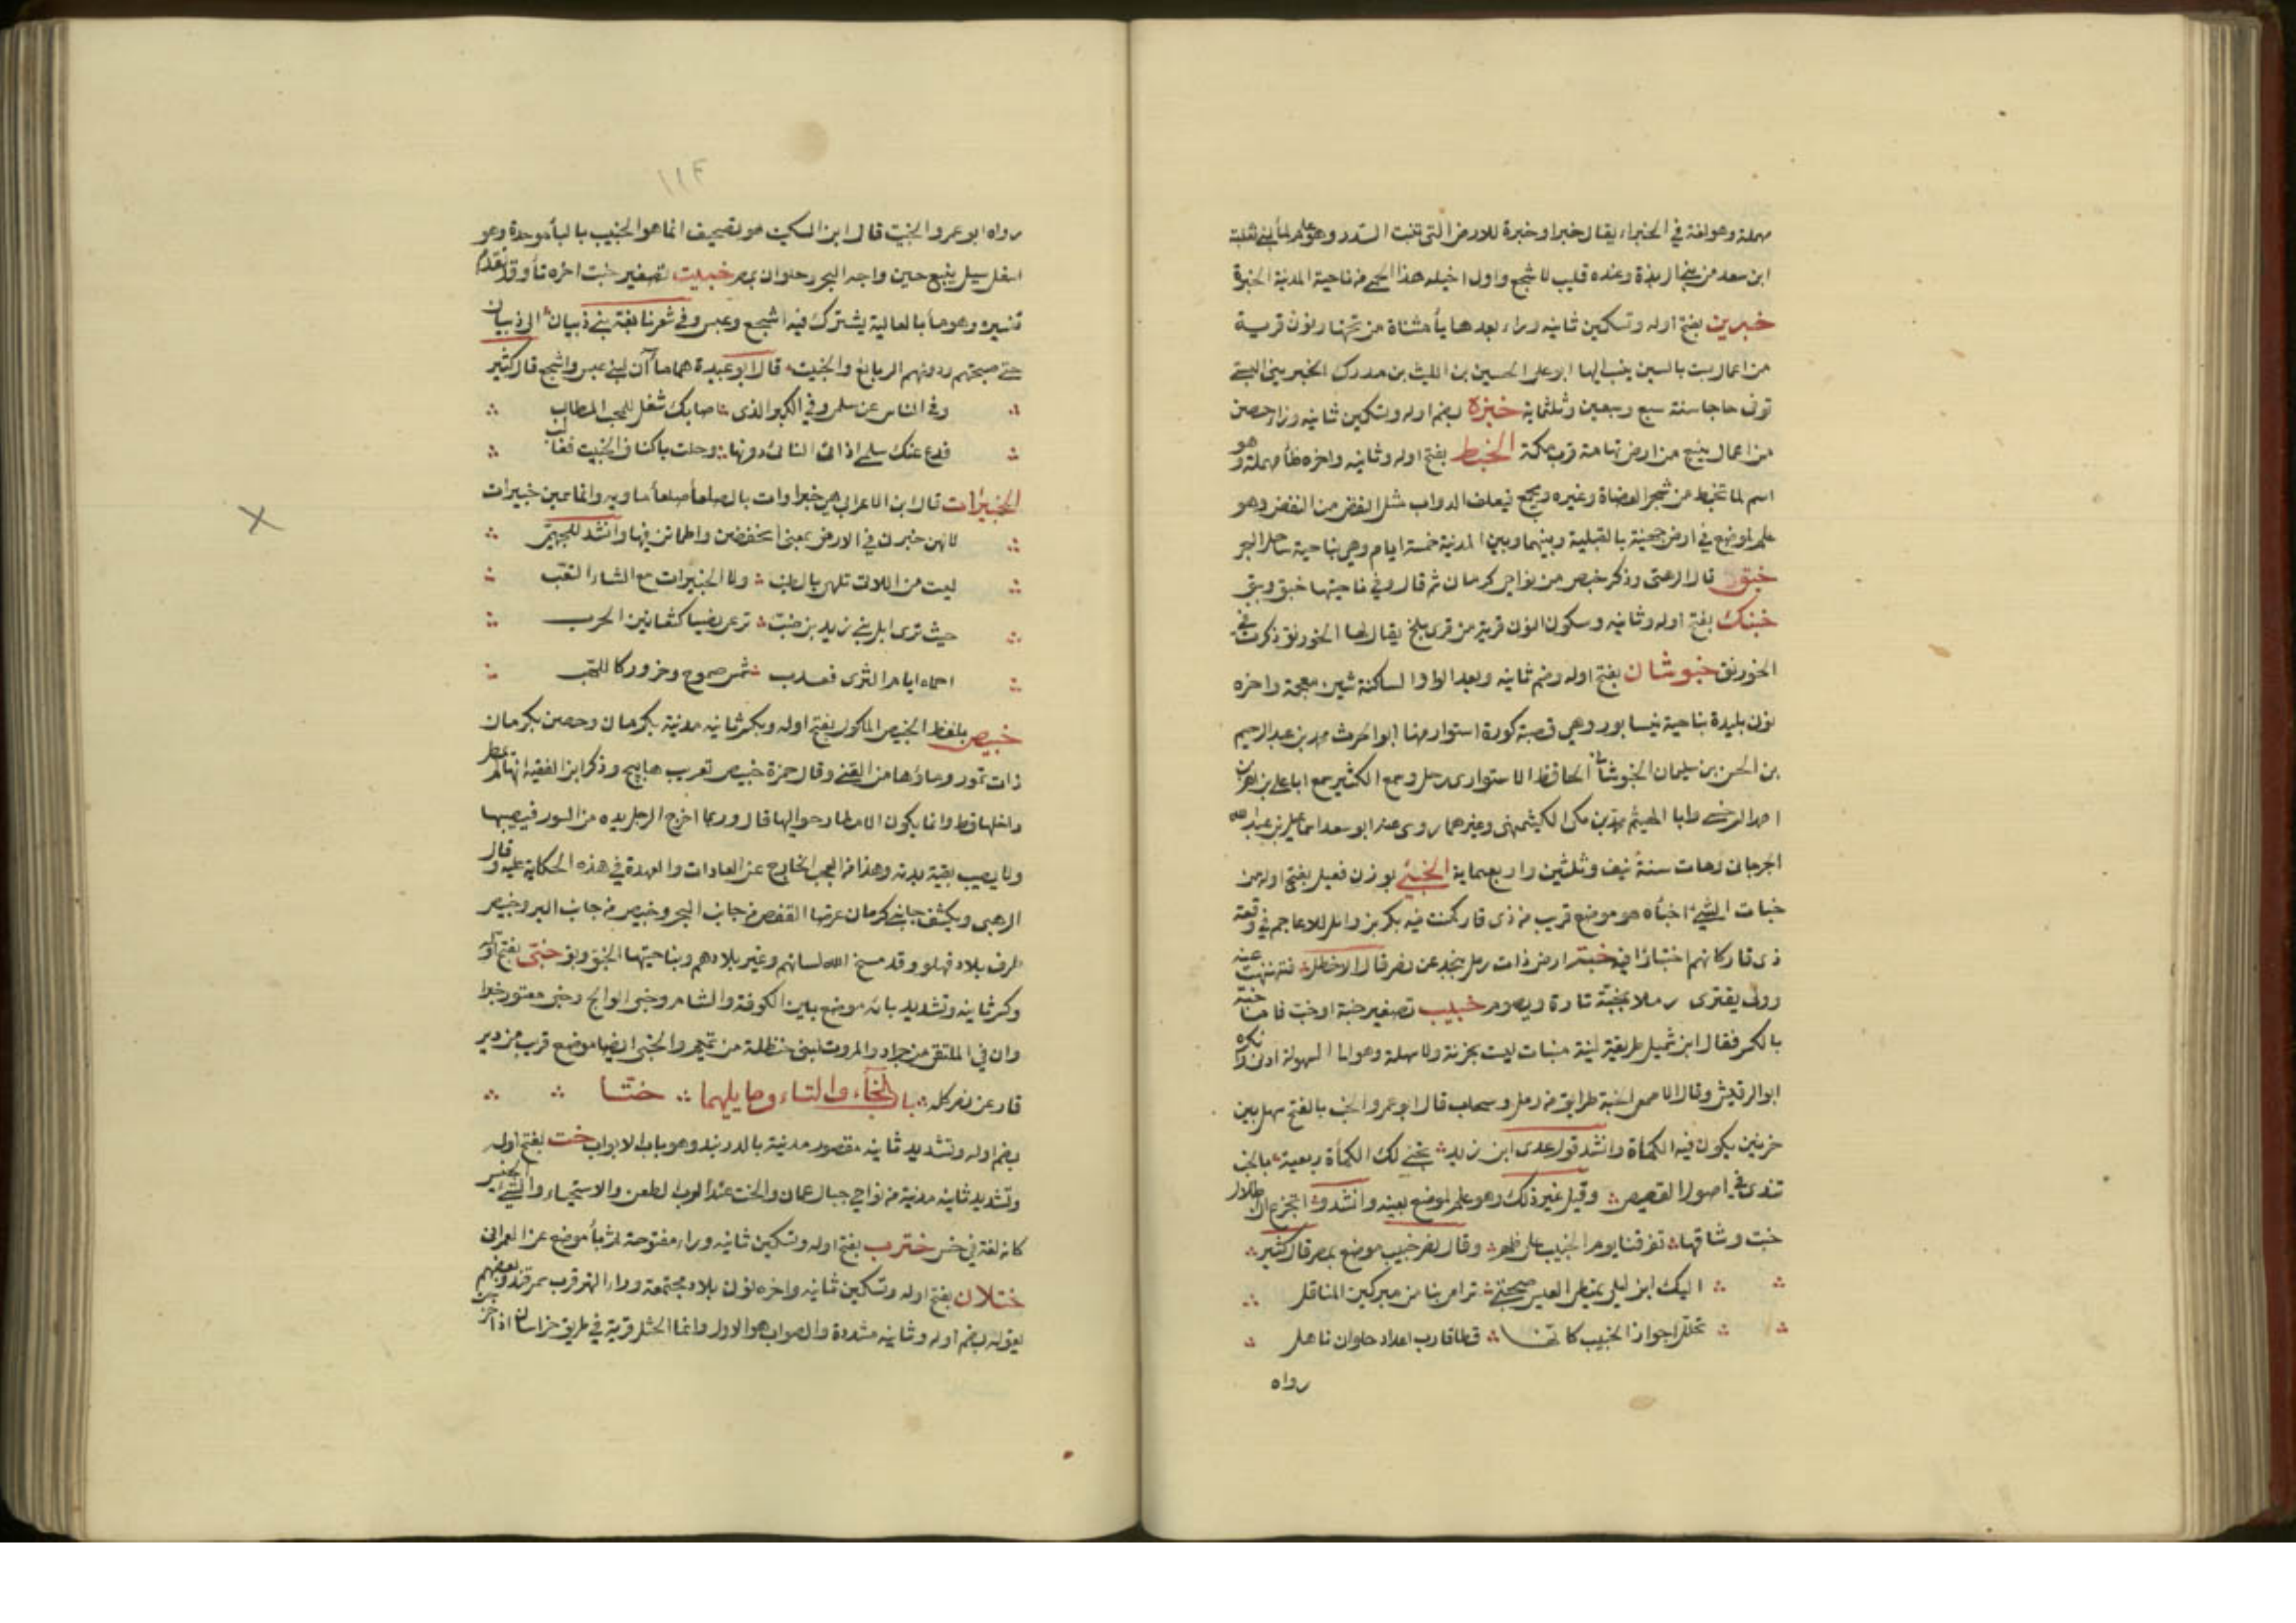 مهملة وهو لغة في الخبراء يقال خبرا وخبرة للارض التى تنبت السدر وهو علم لماء لبني ثعلبة
ابن سعد من حمى الربذة وعنده قليب لاشجع واول اخيله هذا الحمى من ناحية المدينة الخبرة
خبرين بفتح اوله وتسكين ثانيه وراء بعدها ياء مثناة من تحتها ونون قرية
من اعمال بست بالسين ينسب اليها ابو على الحسين بن الليث بن مدرك الخبرينى البستى
توفى حاجا سنة سبع وسبعين وثلثماية خبزة بضم اوله وتسكين ثانيه وزاء حصن
من اعمال ينبع من ارض تهامة قرب مكة الخبط بفتح اوله وثانيه واخره طاء مهملة وهو
اسم لما تخبط من شجر العضاة وغيره ويجمع فيعلف الدواب مثل النفض من النفض وهو
علم لموضع في ارض جهينة بالقبلية وبينها وبين المدينة خمسة ايام وهي بناحية ساحل البحر
خبق قال الرهنى وذكر خبيص من نواحى كرمان ثم قال وفي ناحيتها خبق وببق
خبنك بفتح اوله وثانيه وسكون النون قرية من قرى بلخ يقال لها الخورنق ذكرت في
الخورنق خبوشان بفتح اوله وضم ثانيه وبعد الواو الساكنة شين معجمة واخره
نون بليدة بناحية نيسابور وهي قصبة كورة استوا منها ابو الحرث محمد بن عبد الرحيم
بن الحسن بن سليمان الخبوشانى الحافظ الاستوارى رحل وسمع الكثير سمع ابا على زاهر بن
احمد السرخسى وابا الهيثم محمد بن مكى الكشميهنى وغيرهما روى عنه ابو سعد اسماعيل بن عبد الله
الجرجانى ومات سنة نيف وثلثين واربعماية الخبئ بوزن فعيل بفتح اوله من
خبات الشئ اخبأه هو موضع قريب من ذى قار كمنت فيه بكر بن وائل للاعاجم في وقعة
ذى قار كانهم اختباوا فيه خبتر ارض ذات رمل بنجد عن نصر قال الاخطل فتنهنهت عنه
وولى يقترى رملا بخبة تارة ويصوم خبيب تصغير خبة او خب فاما خبة
بالكسر فقال ابن شميل طريقة لينة منبات ليست بحزنة ولا سهلة وهو الى السهولة ادنى وانكره
ابو الرقيش وقال الاصمعى الخبة طرايق من رمل وسحاب قال ابو عمرو الخب بالفتح سهل بين
حزنين يكون فيه الكمأة وانشد قول عدى ابن زيد تجنى لك الكمأة ربعية بالخب
تندى في اصول القصيص وقيل غير ذلك وهو علم لموضع بعينه وانشدوا اتجزع ان اطلال
خبت وشاقها تفرقنا يوم الخبيب على ظهر وقال نصر خبيب موضع بمصر قال كثير
اليك ابن ليلى تمتطى العيس صحبتى ترامى بنا من مبركين المناقل
تخلل اجواز الخبيب كانها قطا قارب اعداد حلوان ناهل
رواه
١١٤
رواه ابو عمرو الخبيت قال ابن السكيت هو تصحيف انما هو الخبيب بالباء موحدة وهو
اسفل سيل ينبع حين واجه البحر وحلوان بمصر خبيت تصغير خبت اخره تاء وقد تقدم
تفسيره وهو ماء بالعالية يشترك فيه اشجع وعبس وفي شعر نابغة بنى ذبيان الى ذبيان
حتى صبحتهم ودونهم الربائع والخبيت قال ابو عبيدة هما ماآن لبنى عبس واشجع قال كثير
وفي الناس عن سلمى وفي الكبر الذى اصابك شغل للمحب المطالب
فدع عنك سلمى اذ اتى الناى دونها وحلت باكناف الخبيت فغالب
الخبيرات قال ابن الاعرابى هى خبراوات بالصلعاء صلعاء ماوية وانما سمين خبيرات
لانهن خبرن في الارض بمعنى انخفضن واطمانن فيها وانشد للجهيمى
ليست من اللات تلهى بالطنب ولا الخبيرات مع الشاء المغب
حيث ترى ابل بنى زيد بن ضب ترعى نصيا كثعانين الحرب
احماه ايام الثرى فعدب شمس صموح وحرور كاللهب
خبيص بلفظ الخبيص الماكول بفتح اوله وبكسر ثانيه مدينة بكرمان وحصن بكرمان
ذات تمور وماؤها من القنى وقال حمزة خبيص تعريب هابيج وذكر ابن الفقيه انها لم تمطر
داخلها قط وانما يكون الامطار حواليها قال وربما اخرج الرجل يده من السور فيصيبها
ولا يصيب بقية بدنه وهذا من العجب الخارج عن العادات والعهدة في هذه الحكاية عليه وقال
الرهنى ويكتنف جانبى كرمان عرضا القفص من جانب البحر وخبيص من جانب البر وخبيص
طرف بلاد فهلو وقد مسخ الله لسانهم وغير بلادهم وبناحيتها الخبق وببق خبى بفتح اوله
وكسر ثانيه وتشديد يائه موضع بين الكوفة والشام وخبى الوالج وخبى معتور خبرا
وان في الملتقى من جراد والمروت لبنى حنظلة من تميم والخبى ايضا موضع قريب من ذى
قار عن نصر كله باب الخاء والتاء وما يليهما ختا
بضم اوله وتشديد ثانيه مقصور مدينة بالدربند وهو باب الابواب خت بفتح اوله
وتشديد ثانيه مدينة من نواحى جبال عمان والخت عند العرب الطعن والاستحياء والشئ الخسيس
كانه لغة في خس خترب بفتح اوله وتسكين ثانيه وراء مفتوحة ثم باء موضع عن العمرانى
ختلان بفتح اوله وتسكين ثانيه واخره نون بلاد مجتمعة وراء النهر قرب سمرقند وبعضهم
يقوله بضم اوله وثانيه مشددة والصواب هو الاول وانما الختل قرية في طريق خراسان اذا خرجت من